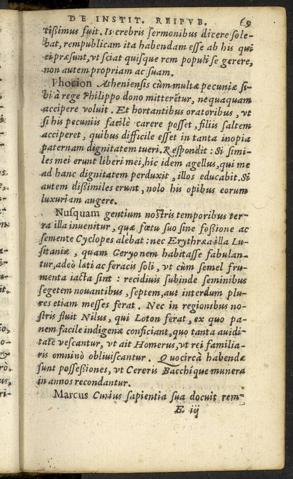 DE INSTIT. REIPVB. 69
tissimus fuit. Is crebris sermonibus dicere sole-
bat, rempublicam ita habendam esse ab his qui
ei præsunt, vt sciat quisque rem populi se gerere,
non autem propriam ac suam.
Phocion Atheniensis cùm multa pecuniæ si-
bi à rege Philippo dono mitteretur, nequaquam
accipere voluit. Et hortantibus oratoribus, vt
si his pecuniis facilè carere posset, filiis saltem
acciperet, quibus difficile esset in tanta inopia
paternam dignitatem tueri, Respondit: Si simi-
les mei erunt liberi mei, hic idem agellus, qui me
ad hanc dignitatem perduxit, illos educabit. Si
autem dissimiles erunt, nolo his opibus eorum
luxuriam augere.
Nusquam gentium nostris temporibus ter-
ra illa inuenitur, quæ fœtu suo sine fossione ac
semente Cyclopes alebat: nec Erythræa illa Lu-
sitaniæ, quam Geryonem habitasse fabulan-
tur, adeò lati ac feracis soli, vt cùm semel fru-
menta iacta sint: recidiuis subinde seminibus
segetem nouantibus, septem, aut interdum plu-
res etiam messes ferat. Nec in regionibus no-
stris fluit Nilus, qui Loton ferat, ex quo pa-
nem facile indigenæ conficiant, quo tanta auidi-
tate vescantur, vt ait Homerus, vt rei familia-
ris omnino obliuiscantur. Quocircà habendæ
sunt possessiones, vt Cereris Bacchique munera
in annos recondantur.
Marcus Curius sapientia sua docuit rem-
E iij